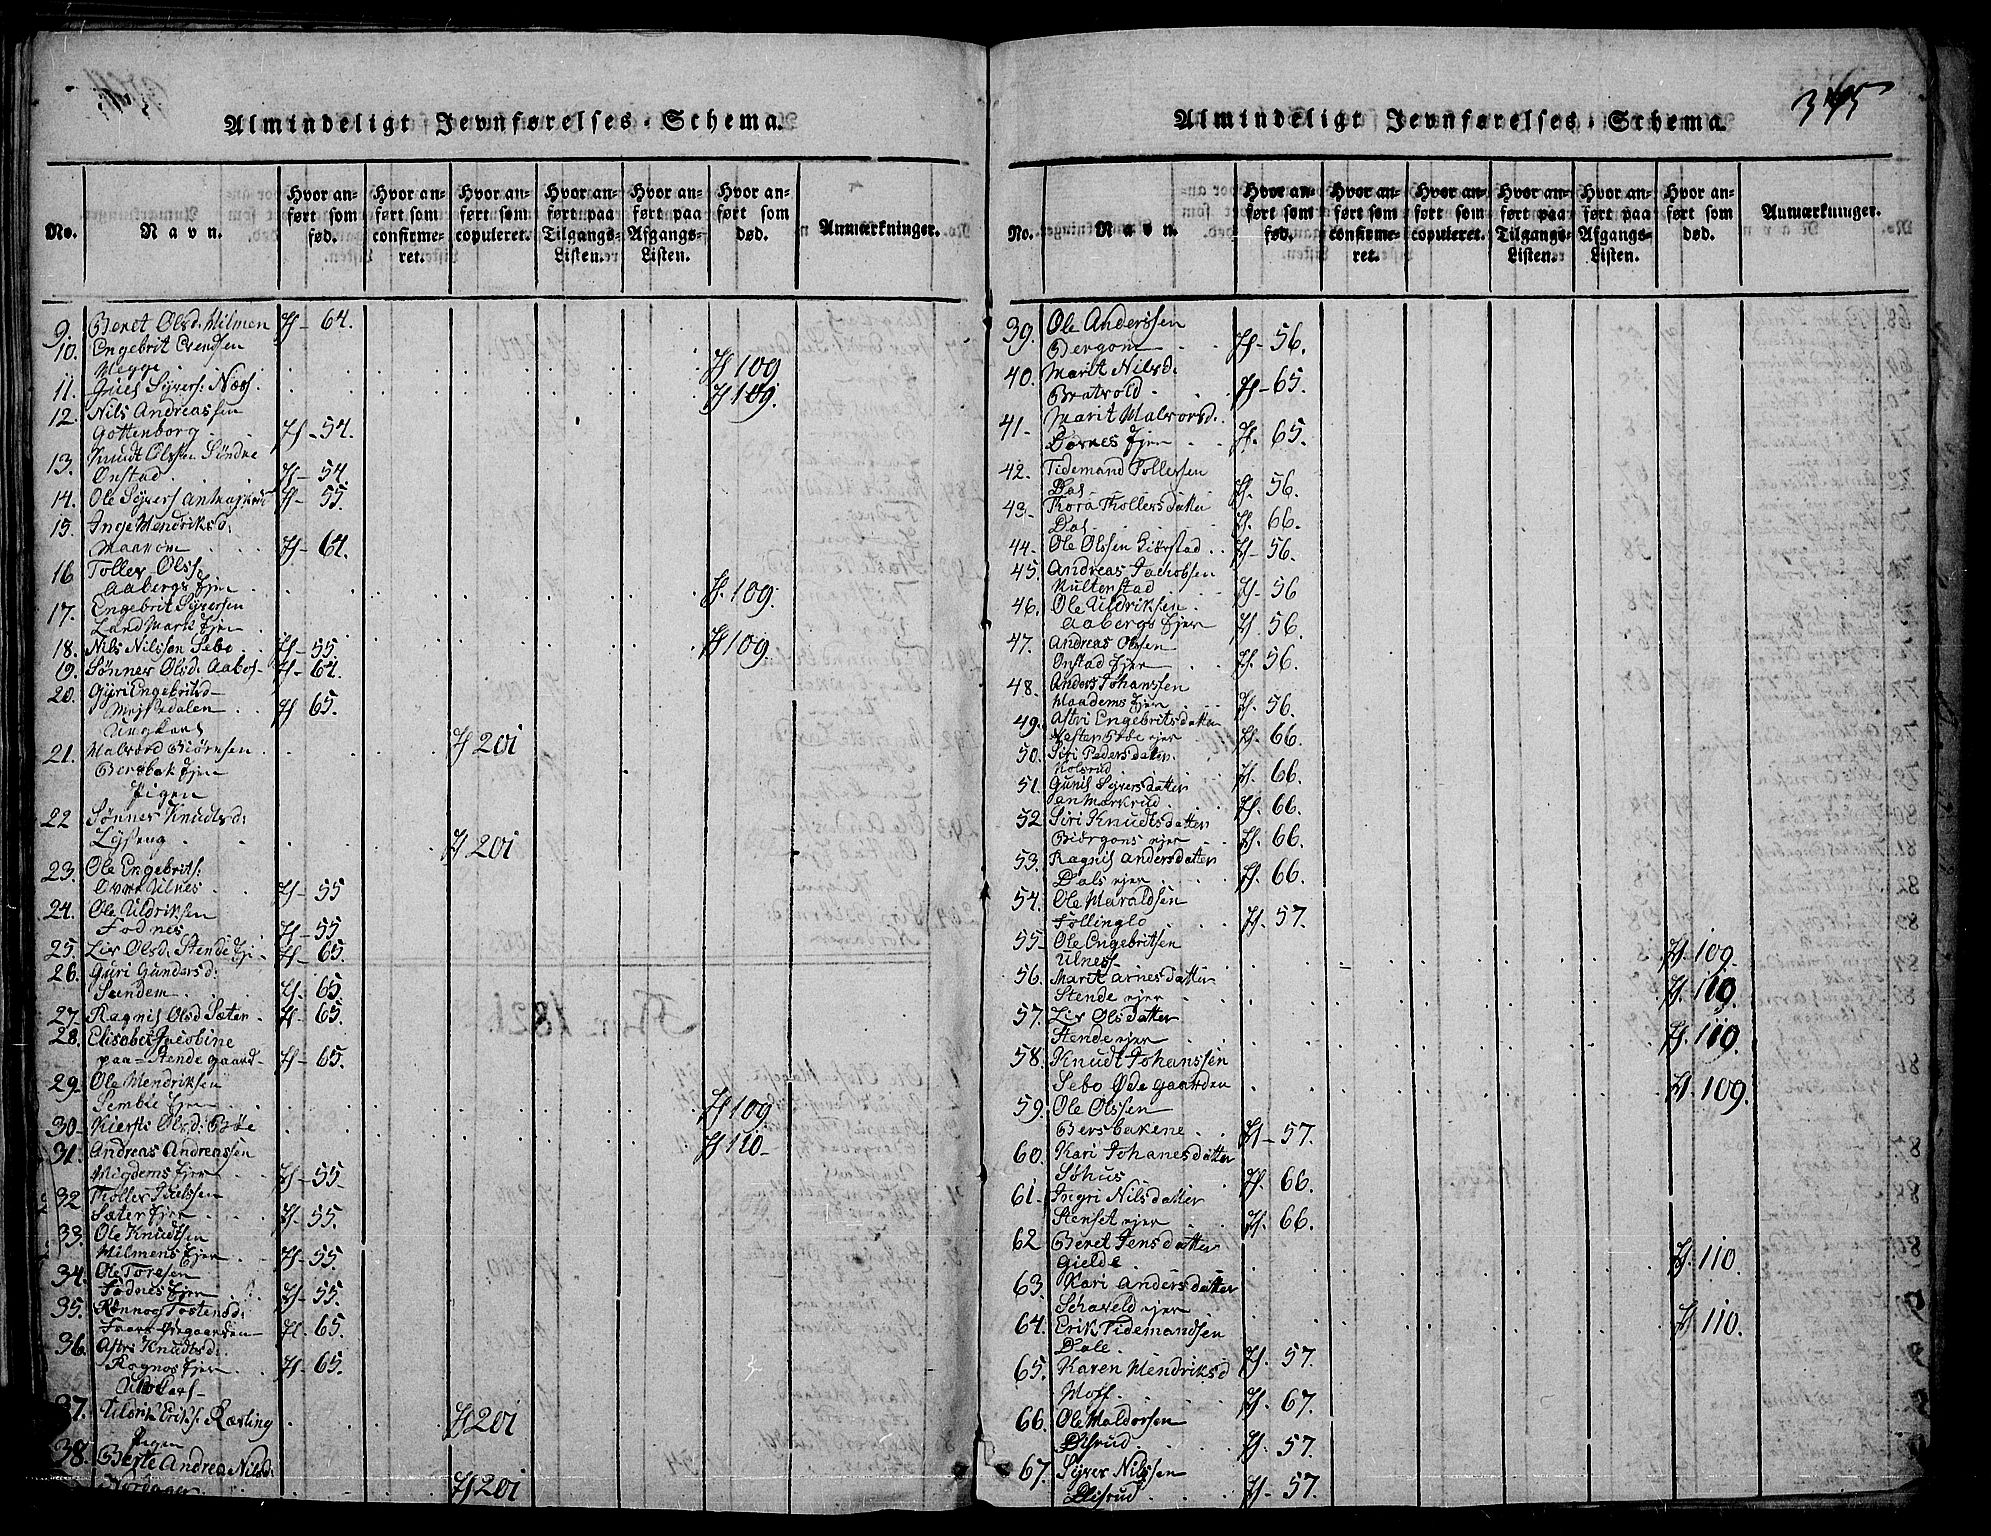 Almindeligt Jevnførelses-Schema.
No.
Navn.
Hvor an-
ført som
fød.
Hvor an-
ført som
confirme-
ret.
Hvor an-
ført som
copuleret.
Hvor an-
ført paa
Tilgangs-
Listen.
Hvor an-
ført paa
Afgangs-
Listen.
Hvor an-
ført som
død.
Anmærkninger.
9. Beret Olsd. Hilmen - 64.
10. Engebrit Evensen
Hegge 109
11. Juel Syvers. Næss. 109.
12. Nils Andreassen
Gottenborg - 54.
13. Knudt Olssen Søndre
Onstad - 54.
14. Ole Syvers. - 55.
15. Inge Hendriksd.
Maarom - 64.
16 Toller Olss.
Aabergs Ejer 109.
17. Engebrit Syversen
Landmark Ejer
109.
18. Nils Nilssøn Sebo - 55.
19. Sønner Olsd. - 64.
20. Gyri Engebritsd.
65.
Ungkarl
21. Halvord Biørnsen 201
Bersbak Ejer
Pigen
22 Sønner Knudtsd.
201
23. Ole Engebrits.
Øvre Ulnes - 55
24. Ole Uldriksen
Fodnes - 55
25. Liv Olsd. Stende Ej. - 65.
26. Guri Gundersd.
Sundem 65
27. Ragnil Olsd. Sæter - 65.
28. Elisabet Jacobine
paa - Stende gaard - 65.
29. Ole Hendriksen
109
30. Kiersti Olsd. Bøe
110 -
31. Andreas Andreassen
- 55.
32 Tholler Juelssen
Sæter Ejer - 55.
33. Ole Knudtsen
Hilmens Ejer - 55.
34. Ole Toresen
Fodnes Ejer - 55.
35. Rønnog Tostensd.
65.
36. Astri Knudtsd.
Rognos Ejer - 65.
37. Uldrik Eriks. Ræsling
201
Pigen
38. Berte Andrea Nilsd.
201
Almindeligt Jevnførelses-Schema.
345
No.
Navn.
Hvor an-
ført som
fød.
Hvor an-
ført som
confirme-
ret.
Hvor an-
ført som
copuleret.
Hvor an-
ført paa
Tilgangs-
Listen.
Hvor an-
ført paa
Afgangs-
Listen.
Hvor an-
ført som
død.
Anmærkninger.
39. Ole Anderssen
Bergom - 56.
40. Marit Nilsd.
Bratvold - 65.
41. Marit Halvorsd.
65.
42. Tidemand Tollersen
Dal 56.
43. Thora Thollersdatter
Dal 66.
44. Ole Olssen - 56.
45. Andreas Jacobsen
Hultenstad - 56
46. Ole Uldriksen
Aabergs Ejer 56.
47. Andreas Olssen
Onstad Ejer 56.
48. Anders Johanssen
Maadems Ejer - 56.
49. Astri Engebritsdatter
66.
50. Siri Pedersdatter
Kolsrud 66.
51. Gunil Syversdatter
66.
52. Siri Knudtsdatter
66.
53. Ragnil Andersdatter
Dals ejer 66.
54. Ole Haraldsen
Follinglo 57.
55. Ole Engebritsen
Ulness 109.
56. Marit Arnesdatter
Stende ejer 110.
57. Liv Olsdatter
Stende ejer 110.
58. Knudt Johanssen
Sebo Øde gaarden 109.
59. Ole Olssen
Bersbakene - 57.
60. Kari Johanesdatter
Søhus 66.
61. Ingri Nilsdatter
Stenset ejer 66.
62 Beret Jensdatter
Gielde 110.
63. Kari Andersdatter
ejer
110.
64. Erik Tidemandsen
Dale 57.
65. Karen Hendriksd
67.
66. Ole Haldorsen
57.
67. Syver Nilssen
- 57.